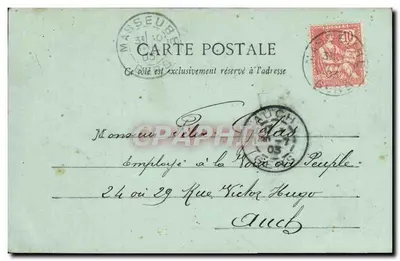 MANSEUBE
CARTE POSTALE
Ce côté est exclusivement réservé à l'adresse
10
AUCH
03
Monsieur
Employé à la Voix du Peuple
24 ou 29 Rue Victor Hugo
Auch